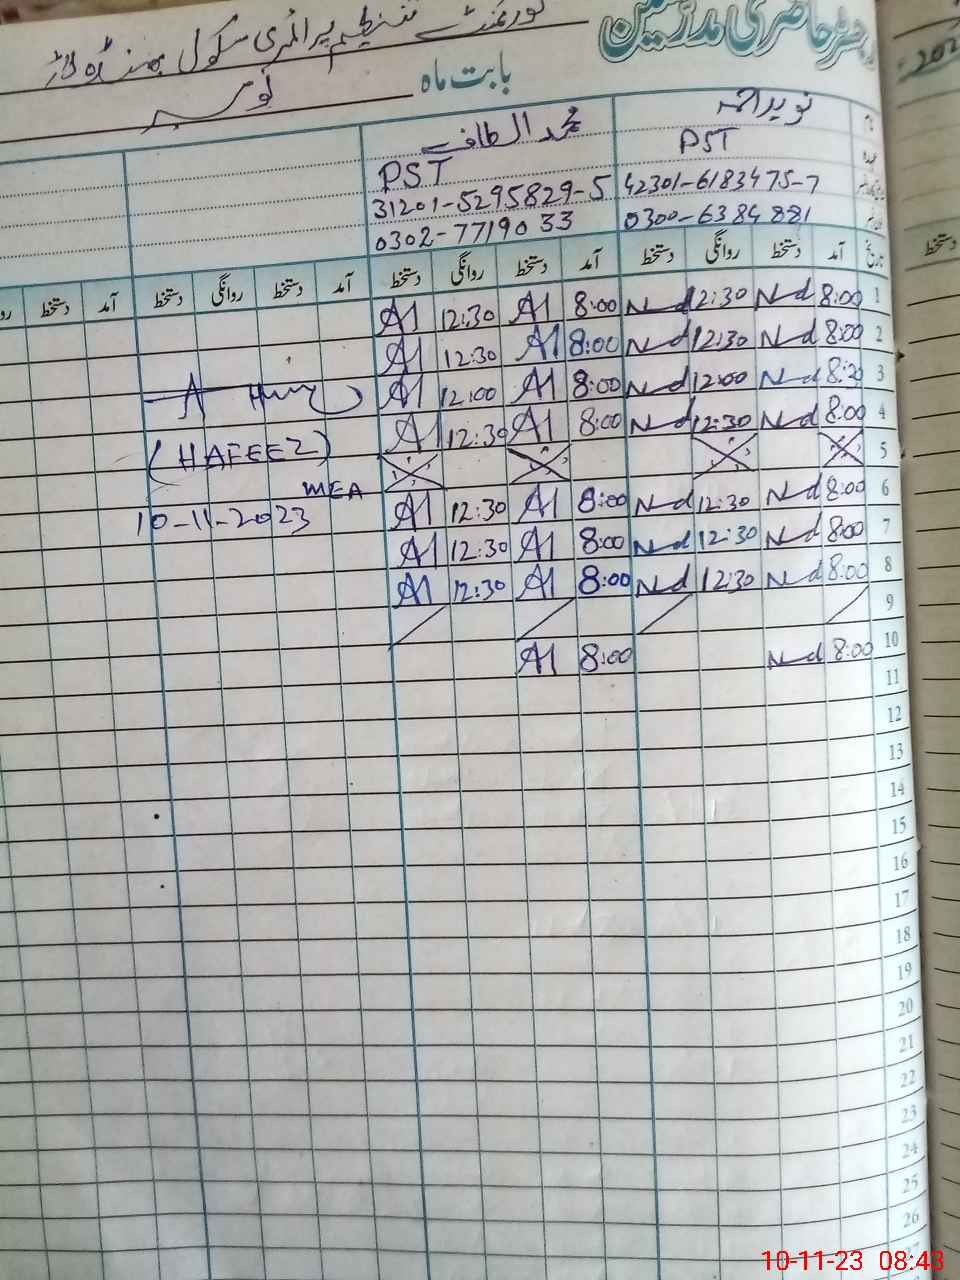 حاضری مدرسین
گورنمنٹ تنظیم پرائمری سکول
بابت ماہ نومبر
نوید احمد
محمد الطاف
PST
PST
42301-6183475-7
31201-5295829-5
0300-6384881
0302-7719033
تاریخ آمد دستخط روانگی دستخط آمد دستخط روانگی دستخط آمد دستخط روانگی دستخط آمد دستخط
دستخط
1 8:00 Nd 12:30 Nd 8:00 Al 12:30 Al
2 8:00 Nd 12:30 Nd 8:00 Al 12:30 Al
3 8:20 Nd 12:00 Nd 8:00 Al 12:00 Al
4 8:00 Nd 12:30 Nd 8:00 Al 12:30 Al
5
6 8:00 Nd 12:30 Nd 8:00 Al 12:30 Al
7 8:00 Nd 12:30 Nd 8:00 Al 12:30 Al
8 8:00 Nd 12:30 Nd 8:00 Al 12:30 Al
9
10 8:00 Nd 8:00 Al
(HAFEEZ)
MEA
10-11-2023
11
12
13
14
15
16
17
18
19
20
21
22
23
24
25
26
10-11-23 08:43